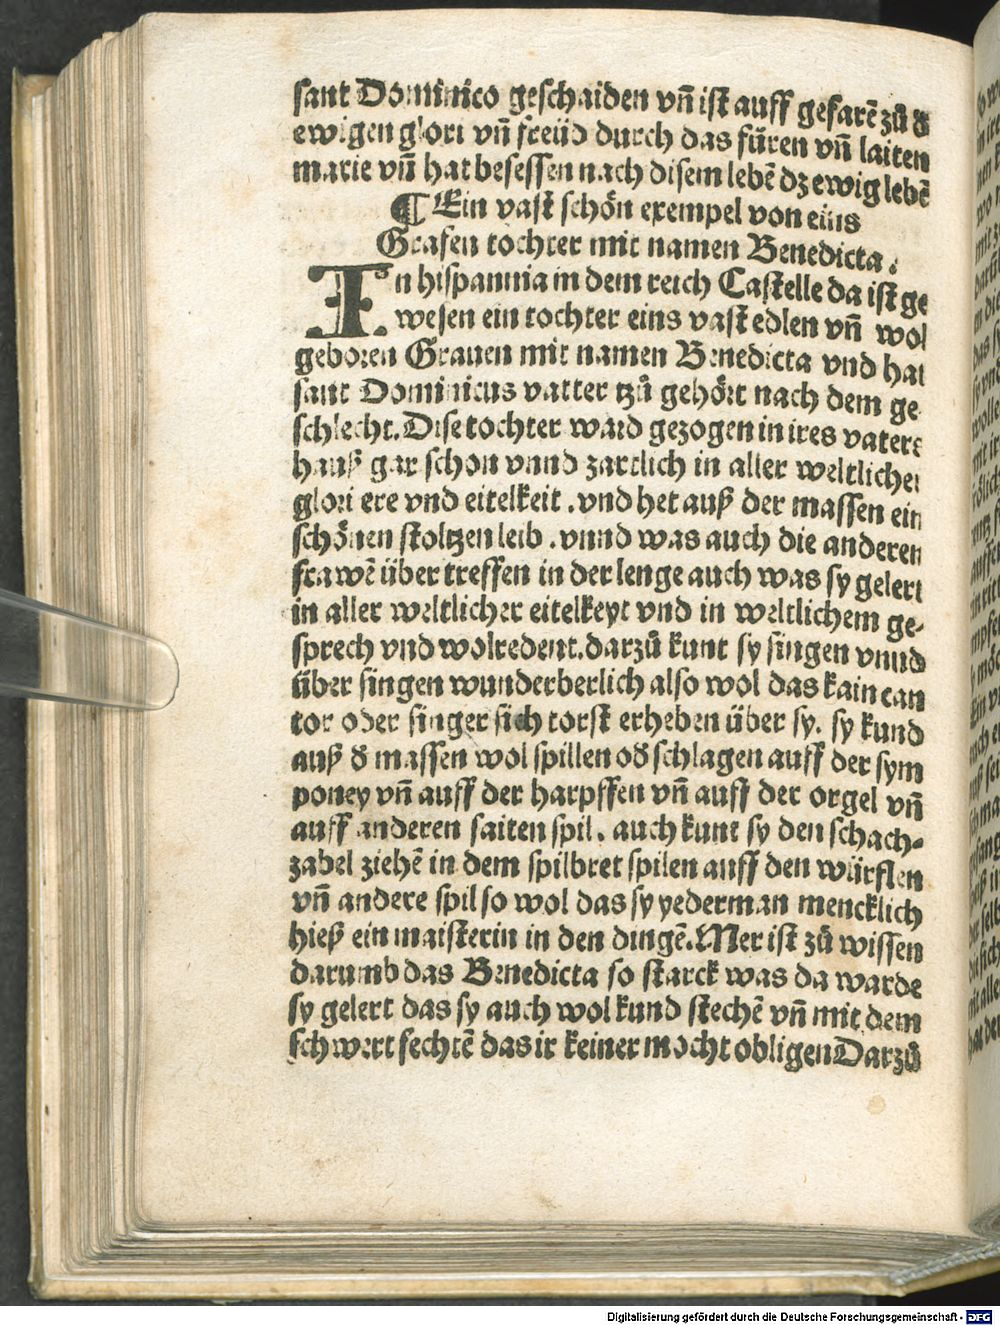 sant Dominico geschaiden vñ ist auff gefarẽ zů đ
ewigen glori vñ freüd durch das fůren vñ laiten
marie vñ hat besessen nach disem lebẽ dz ewig lebẽ
¶ Ein vast schön exempel von eins
Grafen tochter mit namen Benedicta.
In hispannia in dem reich Castelle da ist ge
wesen ein tochter eins vast edlen vñ wol
geboren Grauen mit namen Benedicta vnd hat
sant Dominicus vatter tzů gehört nach dem ge
schlecht. Dise tochter ward gezogen in ires vaters
hauß gar schon vnnd zartlich in aller weltlicher
glori ere vnd eitelkeit. vnd het auß der massen ein
schönen stoltzen leib. vnnd was auch die anderen
frawẽ über treffen in der lenge auch was sy gelert
in aller weltlicher eitelkeyt vnd in weltlichem ge-
sprech vnd wolredent. darzů kunt sy singen vnnd
über singen wunderberlich also wol das kain can
tor oder singer sich torst erheben über sy. sy kund
auß đ massen wol spillen ođ schlagen auff der sym
poney vñ auff der harpffen vñ auff der orgel vñ
auff anderen saiten spil. auch kunt sy den schach-
zabel ziehẽ in dem spilbret spilen auff den würflen
vñ andere spil so wol das sy yederman mencklich
hieß ein maisterin in den dingẽ. Mer ist zů wissen
darumb das Benedicta so starck was da warde
sy gelert das sy auch wol kund stechẽ vñ mit dem
schwert fechtẽ das ir keiner mocht obligen Darzů
Digitalisierung gefördert durch die Deutsche Forschungsgemeinschaft - DFG